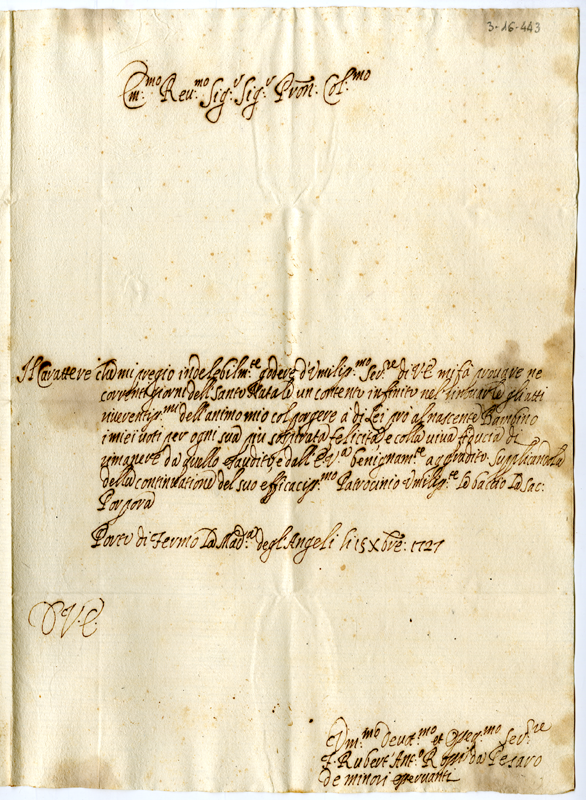 3-16-443
Em:mo Reu:mo Sig:r Sig:r Pron. Col:mo
Il Carattere che mi pregio indelebilm:te godere d'Vmiliss:mo Ser:re di V E mi fà prouare ne
correnti giorni dell Santo Natale un contento infinito nel gli atti
riuerentiss:mi dell'animo mio col porgere a di Lei prò al nascente Bambino
i miei uoti per ogni sua più sospirata felicità, e colla viva fiducia di
rimanere da quello esaudito e dall' E V:a benignam:te aggradito. Supplicandola
della continuatione del suo efficaciss:mo Patrocinio Vmiliss:te Le bacio La Sac:
Porpora
Porto di Fermo La Mad:a degl'Angeli li 15 Xbre: 1727
D V. E.
Vm:mo Deuot:mo et Osseq:mo Ser:re
F. Rubert'Ant:o da Pesaro
de minori osseruanti